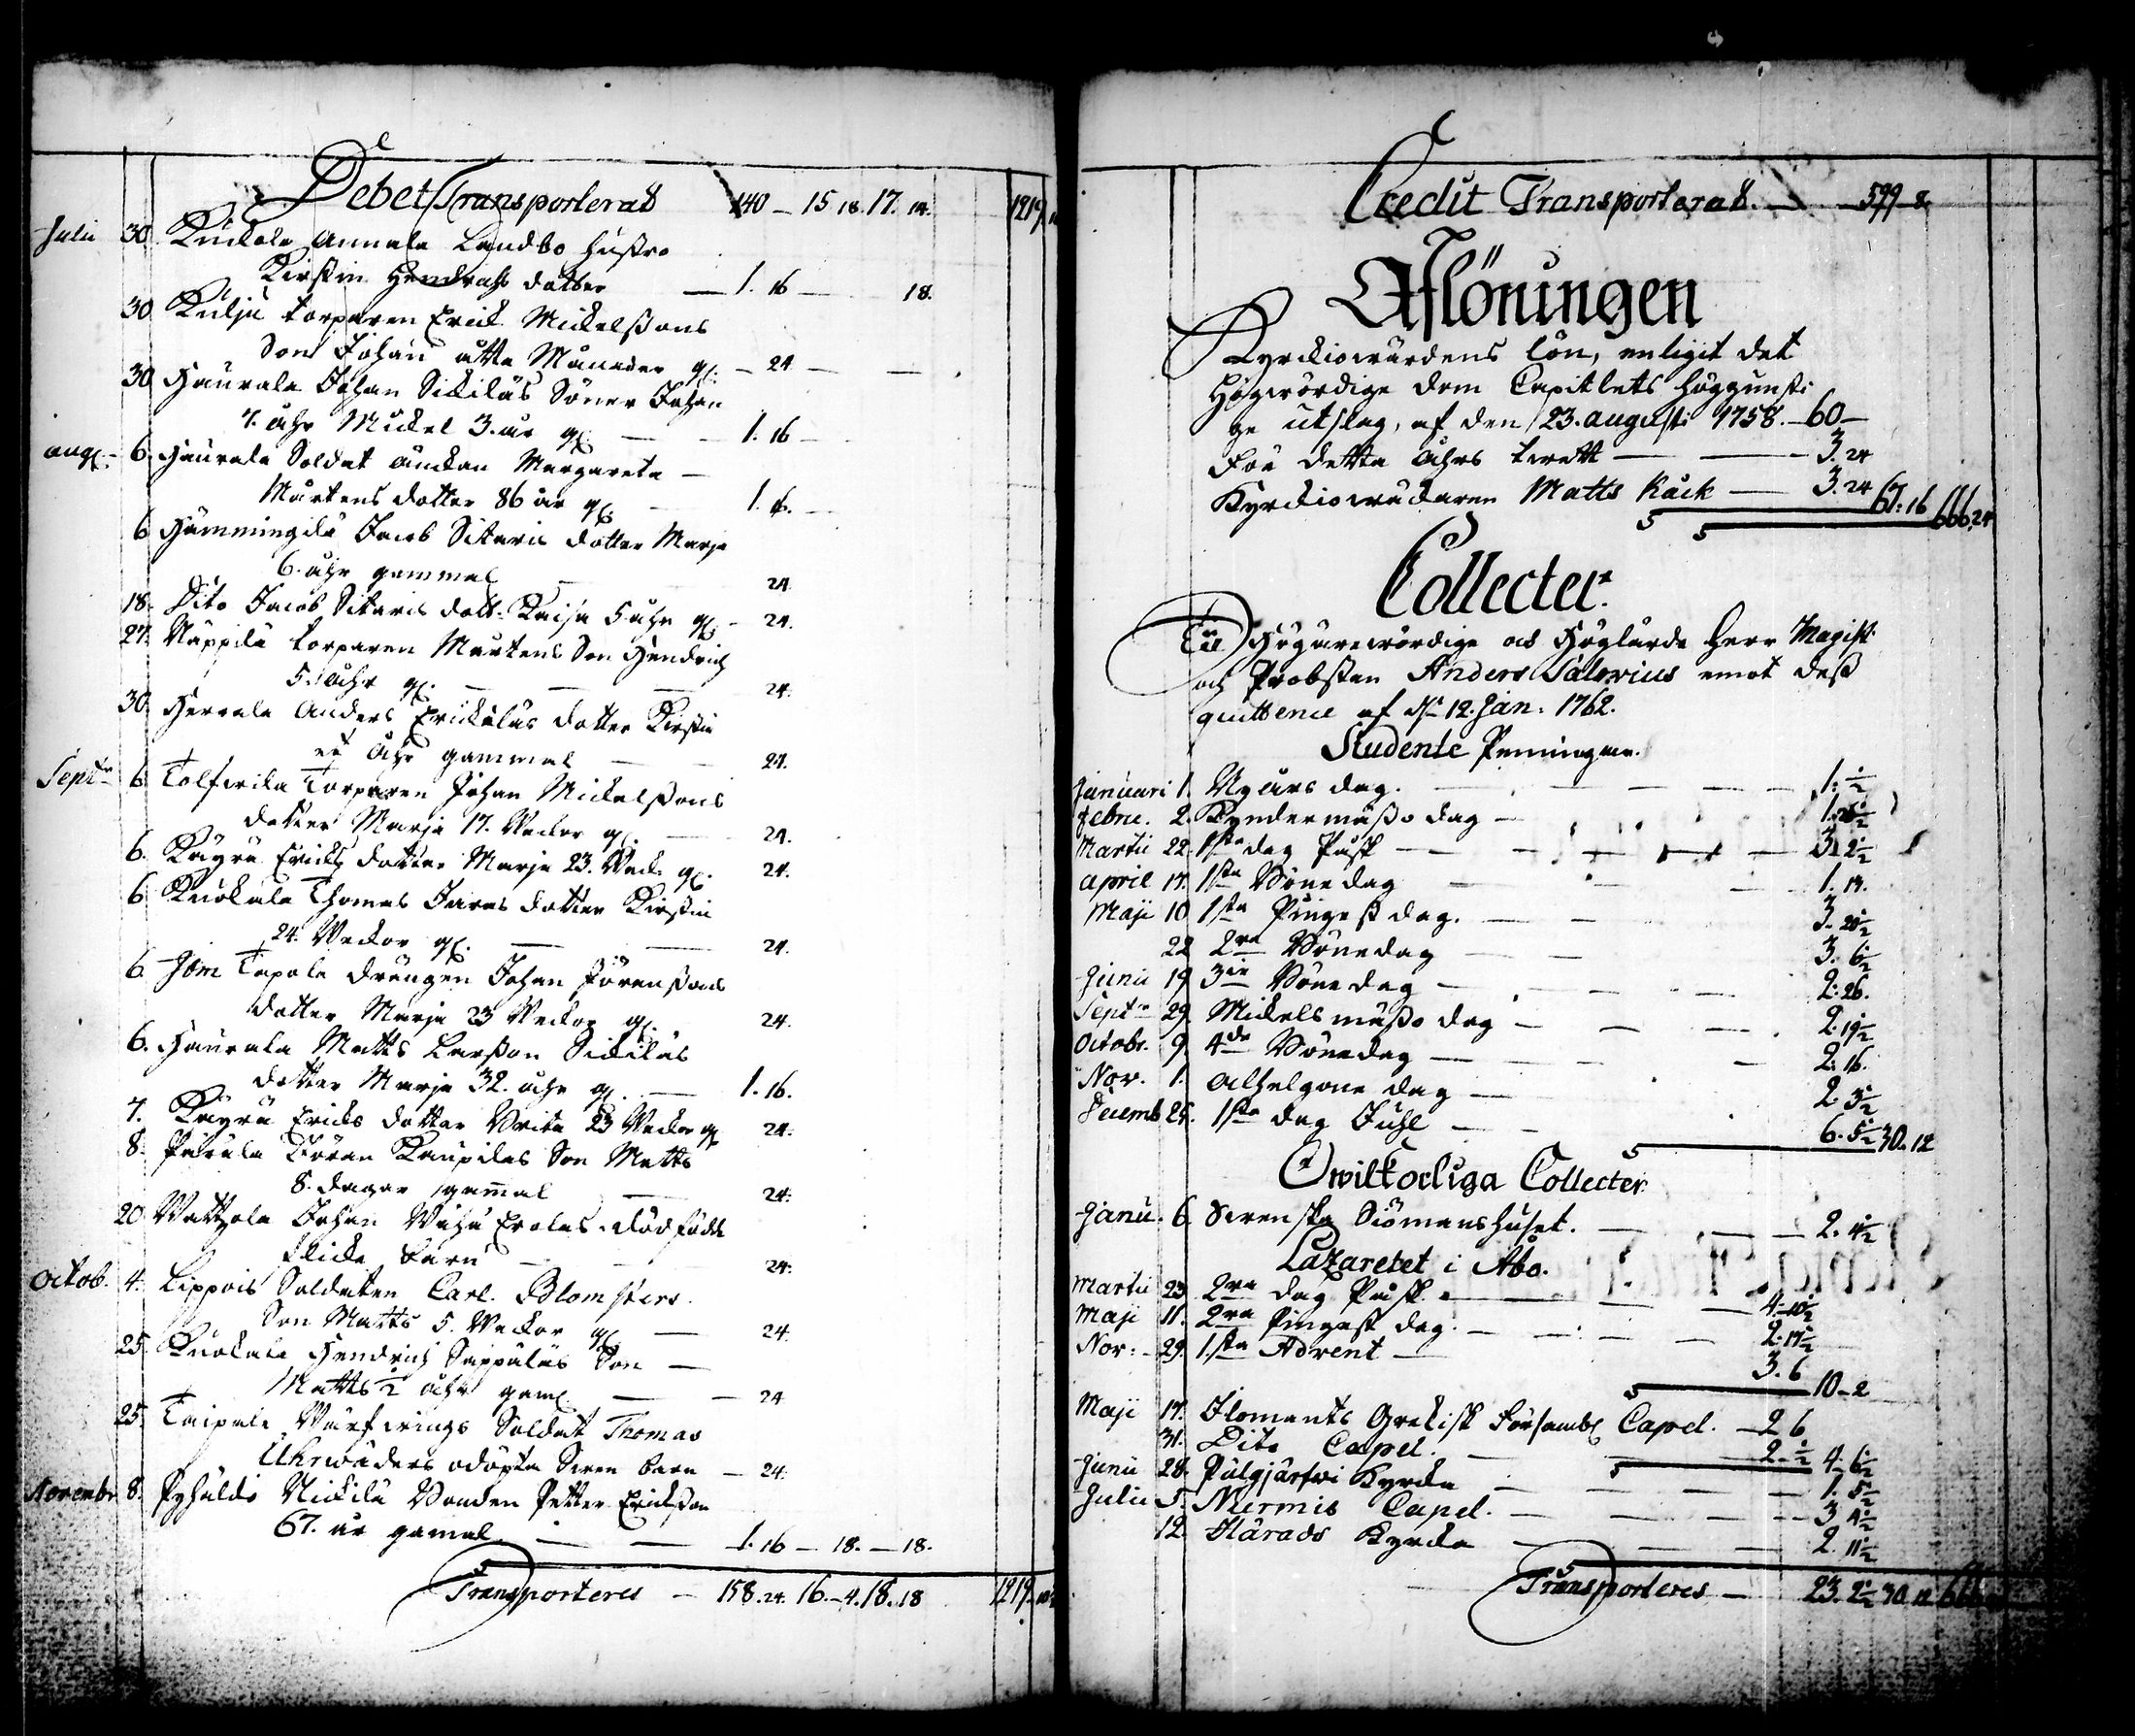 Debet Transporterat 140 — 15 18. 17. 14. 1219.
Julii 30. Kuckola Annala Landbo hustro
Kirstin Hendrichs dotter — 1. 16 — 18.
30 Kulju torparen Erick Mickelßons
Son Johan åtta Månader gl. — 24 —
30 Haurala Johan Sikiläs Söner Johan
7. åhr Mickel 3. år gl. — 1. 16 —
aug. 6. Haurala Soldat änckan Margareta —
Mårtens dotter 86 år gl. 1. 16. —
6 Hämmingilä Jacob Sitaris dotter Marja
6. åhr gammal 24
18. Dito Jacob Sitaris dott. Kaisa 5 åhr gl. — 24.
27. Näppilä torparen Mårtens Son Hendrich
5. åhr gl. — 24.
30. Herrala Anders Erickiläs dotter Kirstin
ett åhr gammal — 24.
Septr 6 Tolfwila Torparen Johan Mickelßons
dotter Marja 17. Veckor gl. — 24.
6. Käyrä Ericks dotter Marja 23. Veck. gl. 24.
6 Kuokala Thomas Jaras dotter Kirstin
24. Veckor gl. — 24.
6. Jbm Tapola drängen Johan Jörenßons
dotter Marja 23 Veckor gl. 24.
6. Haurala Matts Larßon Sikiläs
dotter Marja 32. åhr gl. — 1. 16.
7. Käyrä Ericks dotter Brita 23 Veckor gl. 24.
8. Pärälä Jören Kaupilas Son Matts
8. dagar gamal — 24.
20. Johan dödfödt
flicke barn — 24.
Octob. 4. Lippois Soldaten Carl Blomsters
Son Matts 5. Veckor gl. — 24.
25. Kuokala Hendrich Seppäläs Son —
Matts ½ åhr gaml — 24
25. Taipale Värfnings Soldat Thomas
odöpta Swen barn — 24.
Novembr 8. Pyhäldö Nickilä Bonden Petter Erickßon
67. år gamal — 1. 16 — 18. — 18.
Transporteres — 158. 24. 16. — 4. 18. 18 1219.
Credit Transporterat. — 599 — 8
Aflöningen
Kyrckiowärdens lön, enligit det
Högwördige Dom Capitlets höggunsti
ge utslag, af den 23. augusti 1758. — 60 —
För detta åhrs — 3. 24
Kyrckiowäckaren Matts Käck — 3. 24 67: 16 666. 24
Collecter.
Till Högährewördige och Höglärde Herr Magist.
och Probsten Anders Salovius emot deß
quittence af d. 12. Jan. 1762.
Studente Penningar.
Januari 1. Nyårs dag. — 1: ½
Febru. 2. Kyndermäßo dag — 1. 26½
Martii 22. 1sta dag Påsk — 3. 2½
April 17. 1sta Böne dag — 1. 14.
Maji 10 1sta Pingest dag. — 3. 20½
22 2ra Bönedag — 3. 6½
Junii 19 3ie Böne dag — 2. 26.
Septr 29. Mickels mäßo dag — 2. 19½
Octobr. 9. 4de Bönedag — 2. 16.
Nov. 1. Alhelgona dag — 2. 3½
Decemb 25. 1sta dag Juhl — 6. 5½ 30. 12
Owilkorliga Collecter
Janu. 6. Swenska Siömanshuset. — 2. 4½
Lazaretet i Åbo.
Martii 23 2ra dag Påsk. — 4. 10½
Maji 11. 2ra Pingest dag. — 2. 17½
Nov. 29. 1.sta Advent — 3. 6 10 — 2
Maji 17. Ilomants Grekisk Församl. Capel. — 2 6
31. Dito Capel. — 2. ½ 4. 6½
Junii 28. Pälgjärfwi Kyrcka — 1. 5½
Julii 5. Nurmis Capel. — 3 4½
12. Härads Kyrcka — 2. 11½
Transporteres — 23. 2½ 30 12 666